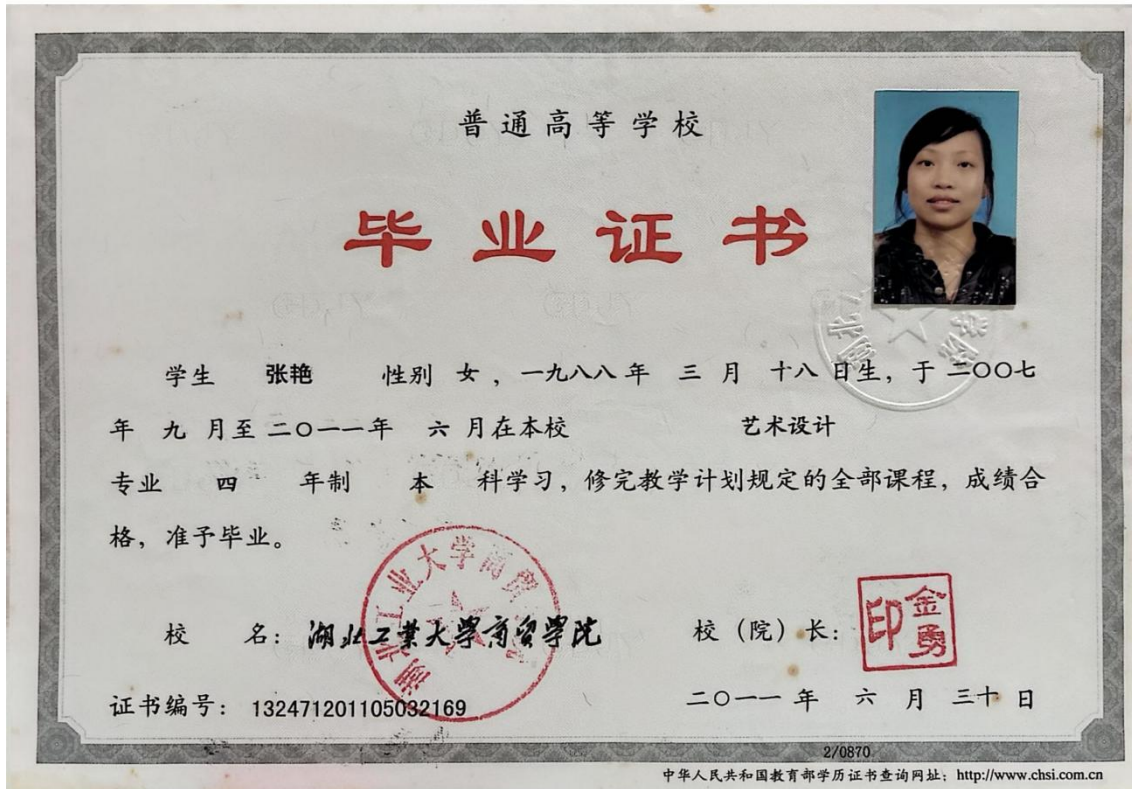 普通高等学校
毕业证书
学生 张艳 性别 女，一九八八年 三 月 十八 日生，于 二〇〇七
年 九 月至 二〇一一年 六 月在本校 艺术设计
专业 四 年制 本 科学习，修完教学计划规定的全部课程，成绩合
格，准予毕业。
校 名：湖北工业大学商贸学院
湖北工业大学商贸
校（院）长：
金勇
印
证书编号：132471201105032169
二〇一一 年 六 月 三十 日
2/0870
中华人民共和国教育部学历证书查询网址：http://www.chsi.com.cn